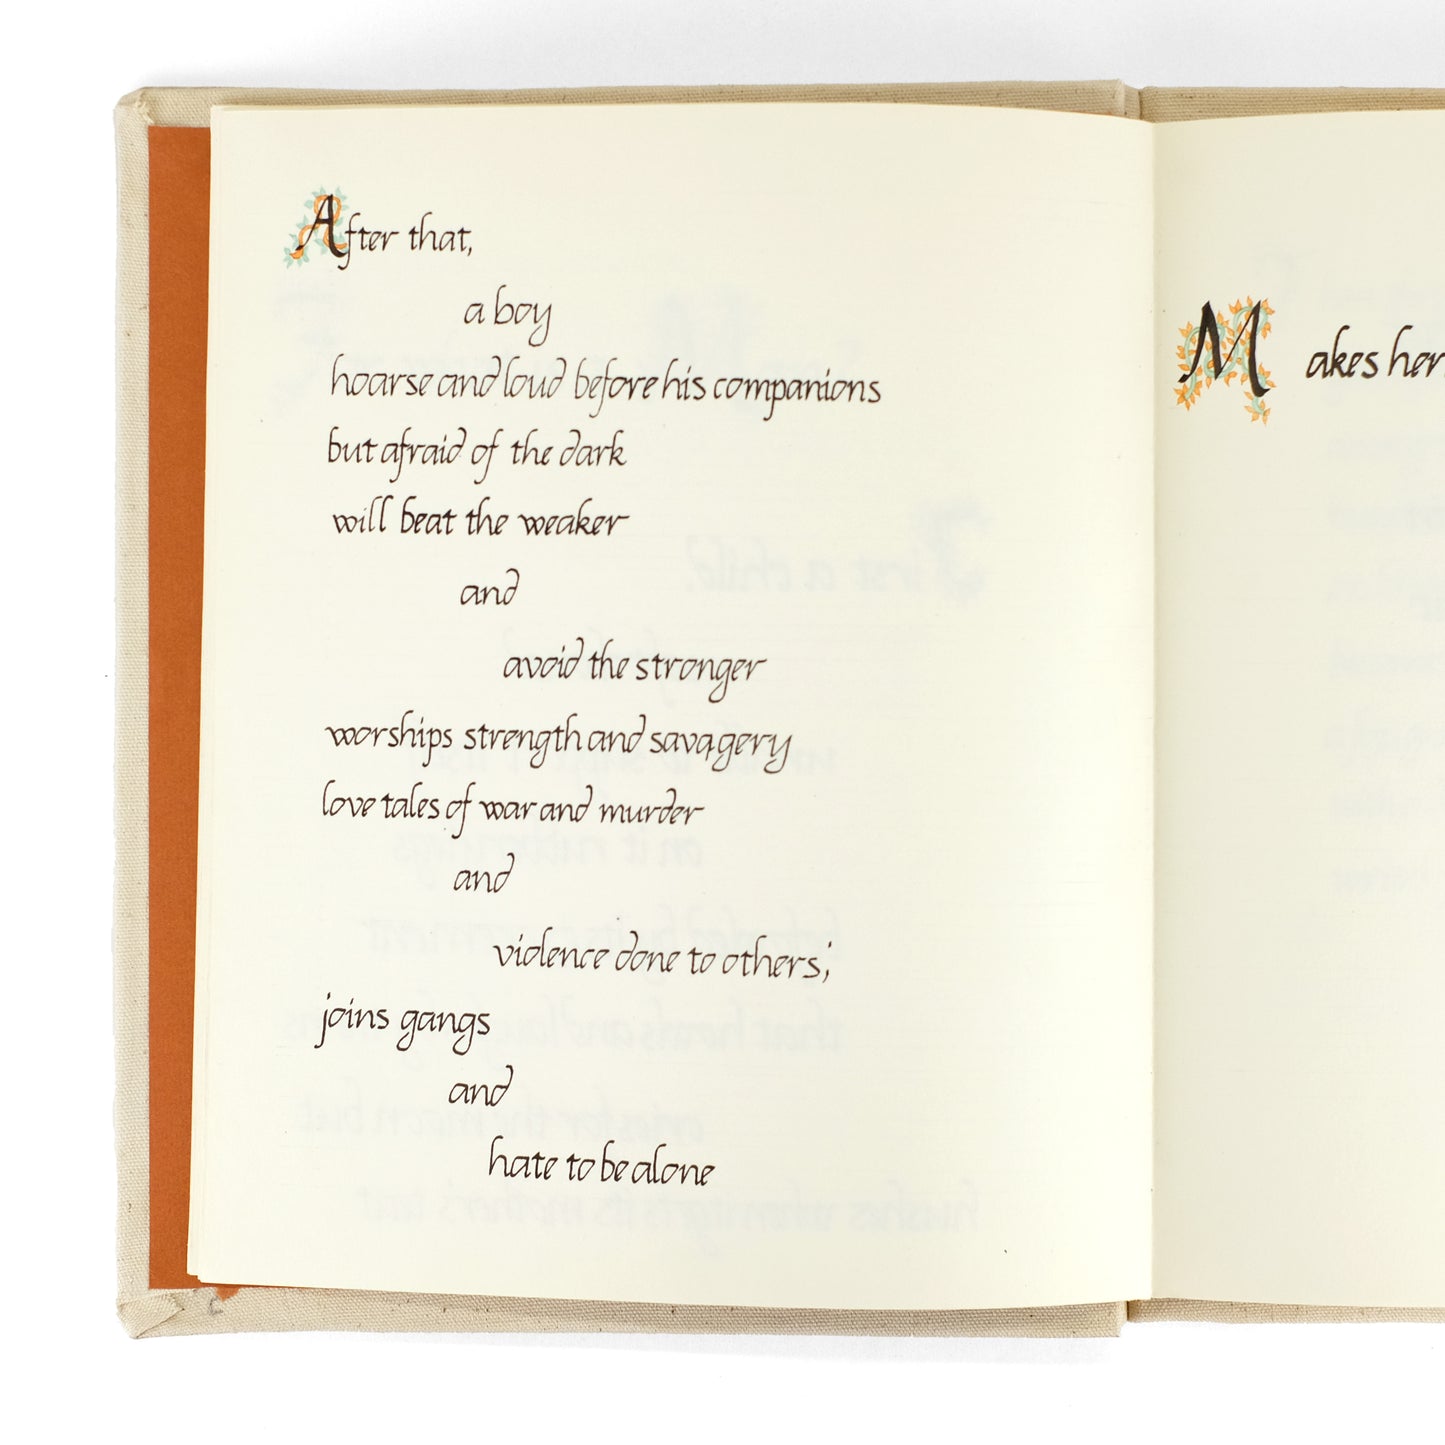 After that,
a boy
hoarse and loud before his companions
but afraid of the dark
will beat the weaker
and
avoid the stronger
worships strength and savagery
love tales of war and murder
and
violence done to others;
joins gangs
and
hate to be alone
Makes her